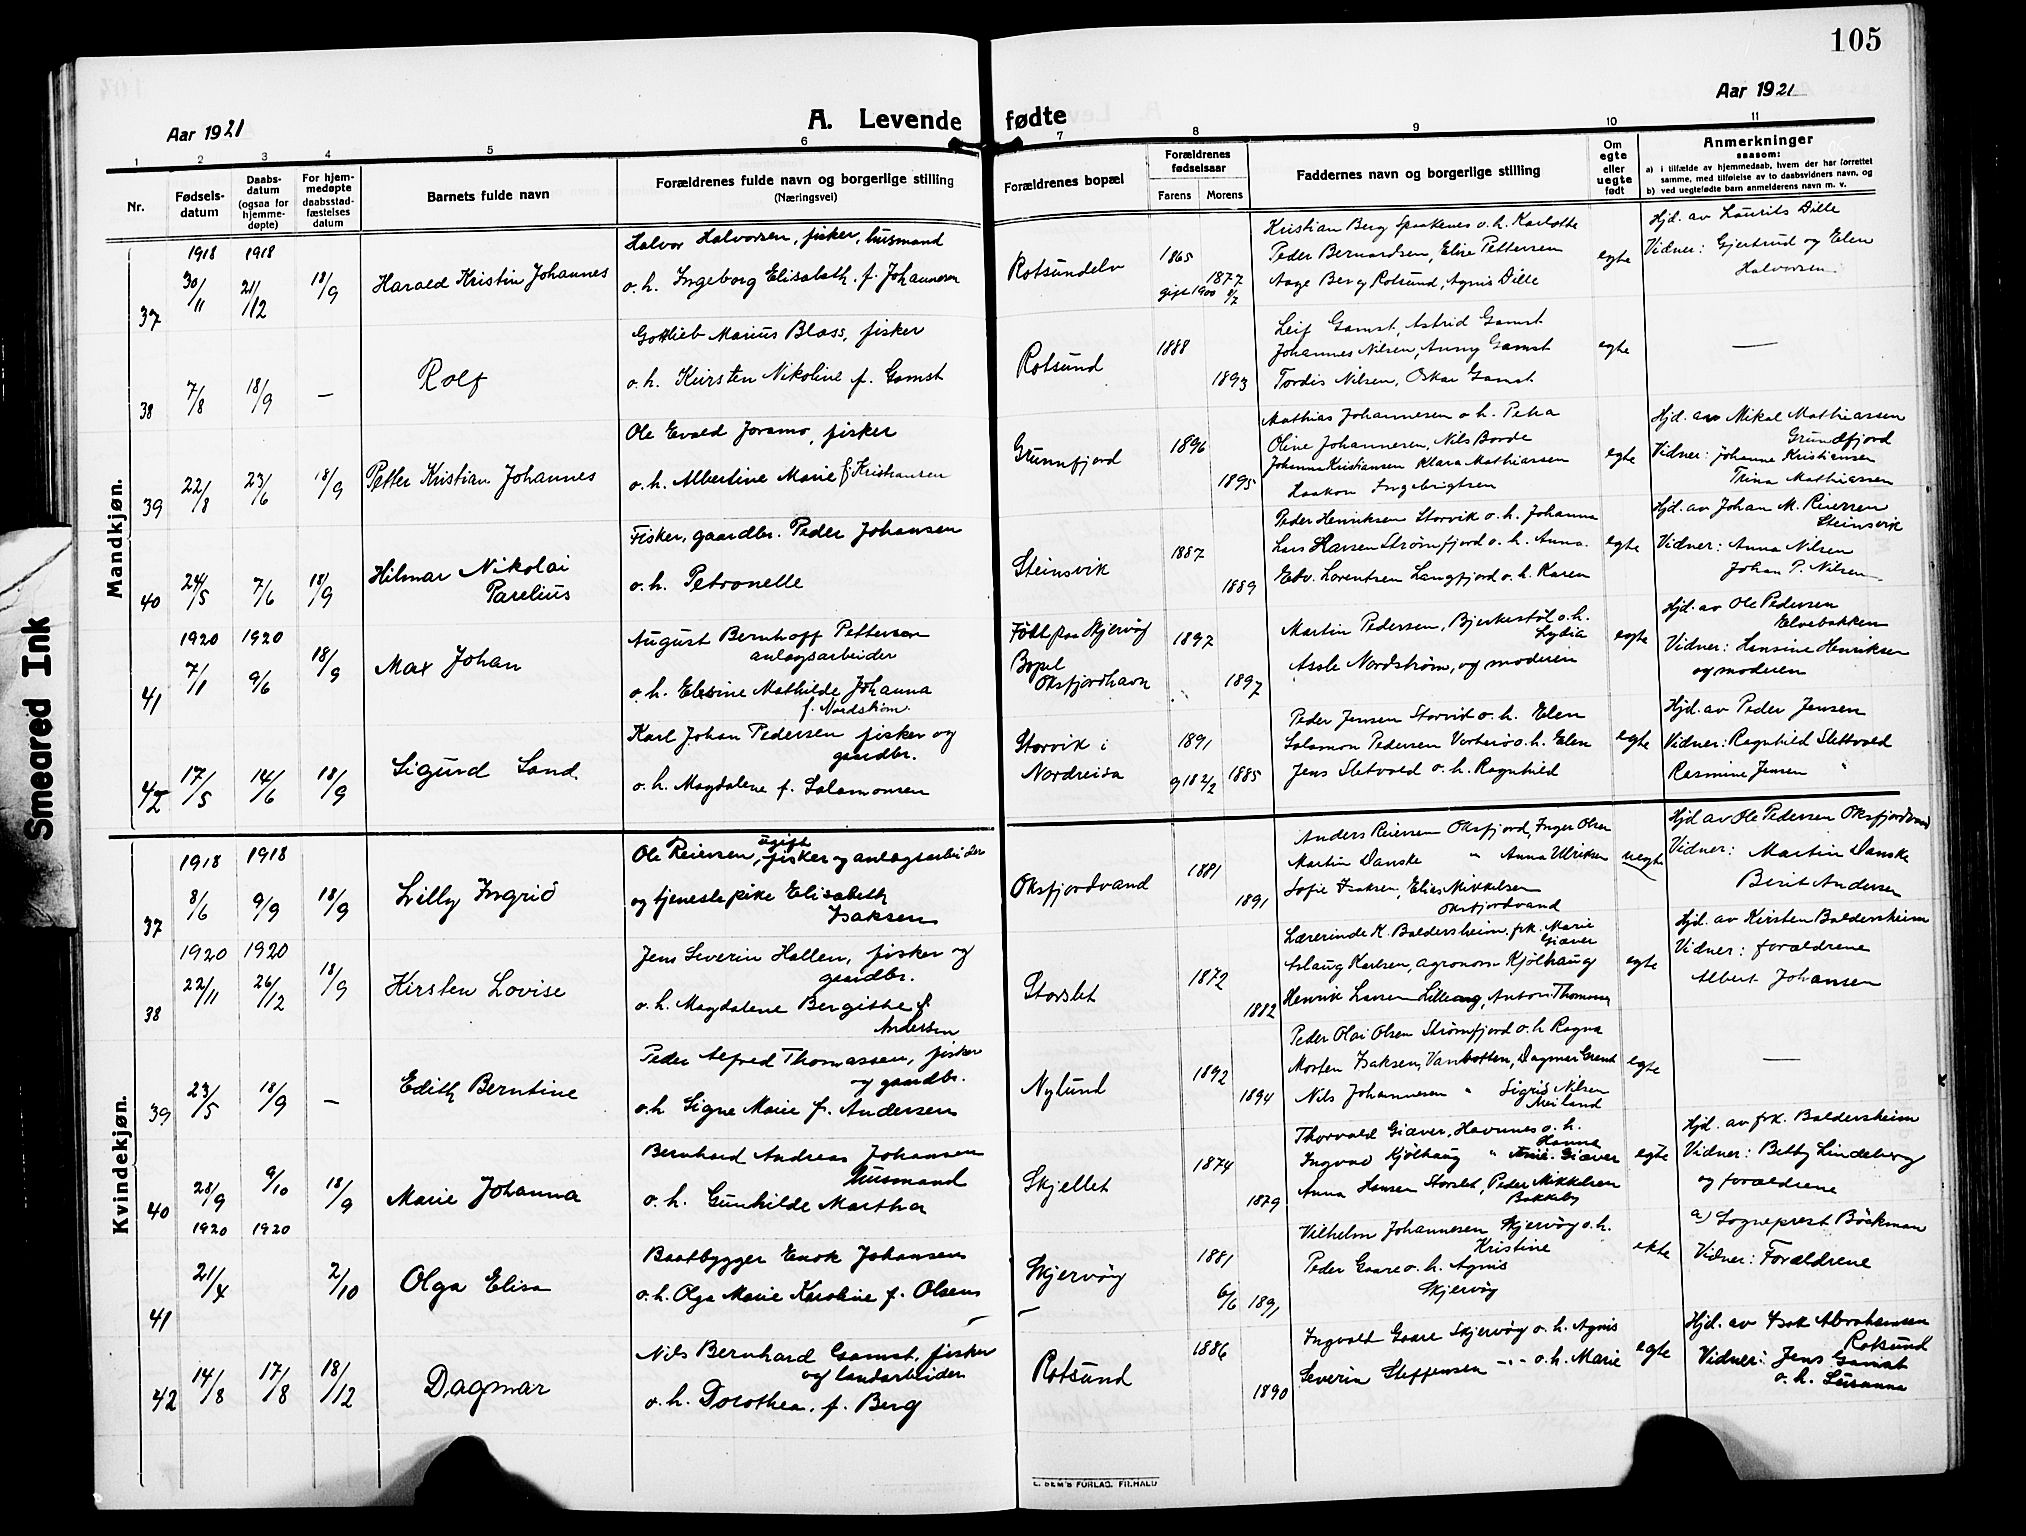 105
Aar 1921
Aar 1921
A. Levende fødte
1 2 3 4 5 6 7 8 9 10 11
Nr.
Fødsels-
datum
Daabs-
datum
(ogsaa for
hjemme-
døpte)
For hjem-
medøpte
daabsstad-
fæstelses
datum
Barnets fulde navn
Forældrenes fulde navn og borgerlige stilling
(Næringsvei)
Forældrenes bopæl
Forældrenes
fødselsaar
Farens Morens
Faddernes navn og borgerlige stilling
Om
egte
eller
uegte
født
Anmerkninger
saasom:
a) i tilfælde av hjemmedaab, hvem der har forrettet
samme, med tilføielse av to daabsvidners navn, og
b) ved uegtefødte barn anmelderens navn m. v.
Smeared Ink
Mandkjøn.
37
1918 30/11
1918 21/12
18/9
Harald Kristin Johannes
Halvor Halvorsen, fisker, husmand
o. h. Ingeborg Elisabeth f. Johannesen
Rotsundelv
1865
1877
gift 1900 8/7
Kristian Berg Spaakenes o. h. Karlotte
Peder Bernardsen, Elise Pettersen
Aage Berg Rotsund, Agnis Dille
egte
Hjd. av Laurits Dille
Vidner: Gjertrud og Elen
Halvorsen
38
7/8
18/9
—
Rolf
Gottlieb Marius Blass, fisker
o. h. Kirsten Nikoline f. Gamst
Rotsund
1888
1893
Leif Gamst, Astrid Gamst
Johannes Nilsen, Anny Gamst
Tordis Nilsen, Oskar Gamst
egte
—
39
22/8
23/6
18/9
Petter Kristian Johannes
Ole Evald Joramo, fisker
o. h. Albertine Marie f. Kristiansen
Grunnfjord
1896
1895
Mathias Johannesen o h. Petra
Oline Johannesen, Nils Borde
Johanna Kristiansen Klara Mathiassen
Haakon Ingebrigtsen
egte
Hjd. av Mikal Mathiassen
Grundfjord
Vidner: Johanne Kristiansen
Trina Mathiassen
40
24/5
7/6
18/9
Hilmar Nikolai
Parelius
Fisker, gaardbr. Peder Johansen
o. h. Petronelle
Steinsvik
1887
1889
Peder Henriksen Storvik o. h. Johanna
Lars Hansen Strømfjord o. h. Anna.
Edv. Lorentsen Langfjord o. h. Karen
egte
Hjd. av Johan M. Reiersen
Steinsvik
Vidner: Anna Nilsen
Johan P. Nilsen
41
1920 7/1
1920 9/6
18/9
Max Johan
August Bernhoff Pettersen
anlægsarbeider
o. h. Elesine Mathilde Johanna
f. Nordstrøm.
Født paa Skjervøy
Bopel
Oksfjordhavn
1897
1897
Martin Pedersen, Bjerkestøl o. h.
Lydia
Assle Nordstrøm, og moderen
egte
Hjd. av Ole Pedersen
Elvebakken
Vidner: Hansine Henriksen
og moderen
42
17/5
14/6
18/9
Sigurd Sand
Karl Johan Pedersen fisker og
gaardbr.
o. h. Magdalene f. Salamonsen
Storvik i
Nordreisa
1891
1885
Peder Jensen Storvik o. h. Elen
Salamon Pedersen Vorterø o. h. Elen
Jens Sletvold o. h. Ragnhild
egte
Hjd. av Peder Jensen
Vidner: Ragnhild Slettvold
Rasmine Jensen "
Kvindekjøn.
37
1918 8/6
1918 9/9
18/9
Lilly Ingrid
Ole Reiersen, ugift fisker og anlægsarbeider
og tjenestepike Elisabeth
Isaksen
Oksfjordvand
1881
1891
Anders Reiersen Oksfjord, Inger Olsen
Martin Danske " Anna Ulriksen
Sofie Isaksen, Elias Mikkelsen
Oksfjordvand
uegte
Hjd av Ole Pedersen Oksfjordvand
Vidner: Martin Danske
Berit Andersen
38
1920 22/11
1920 26/12
18/9
Kirsten Lovise
Jens Severin Hallen, fisker og
gaardbr.
o. h. Magdalene Bergithe f.
Andersen
Storslet
1872
1882
Lærerinde K. Baldersheim, frk. Marie
Giæver
Aslaug Karlsen, agronom Kjølhaug
Henrik Larsen Lilleng, Anton Thomassen
egte
Hjd. av Kirsten Baldersheim
Vidner: forældrene
Albert Johansen
39
23/5
18/9
—
Edith Berntine
Peder Alfred Thomassen, fisker
og gaardbr.
o. h Signe Marie f. Andersen
Nylund
1892
1894
Peder Olai Olsen Strømfjord o. h Ragna
Morten Isaksen, Vanbotten, Dagmar
Nils Johannesen " Sigrid Nilsen
Meiland
egte
—
40
28/9
1920
9/10
1920
18/9
Marie Johanna
Bernhard Andreas Johansen
husmand
o. h. Gunhilde Martha
Skjellet
1874
1879
Thorvald Giæver, Havnnes o. h.
Hanna
Ingvald Kjølhaug " Arne Giæver
Anna Hansen Storslet, Peder Mikkelsen
Bakkeby
egte
Hjd. av frk. Baldersheim
Vidner: Betty Lindeberg
og forældrene
41
21/4
2/10
Olga Elisa
Baatbygger Enok Johansen
o. h. Olga Marie Karoline f. Olsen
Skjervøy
1881
6/6 1891
Vilhelm Johannesen Skjervøy o. h.
Kristine
Peder Gaare o. h. Agnis
Skjervøy
ekte
a) Sogneprest Böckman
Vidner: Forældrene
42
14/8
17/8
18/12
Dagmar
Nils Bernhard Gamst, fisker
og landarbeider
o. h. Dorothea, f. Berg
Rotsund
1886
1890
Ingvald Gaare Skjervøy o. h. Agnis
Severin Steffensen -"- o. h. Marie
egte
Hjd. av Isak Abrahamsen
Rotsund
Vidner: Jens Gamst
o. h. Susanna
E. SEM'S FORLAG. FR.HALD